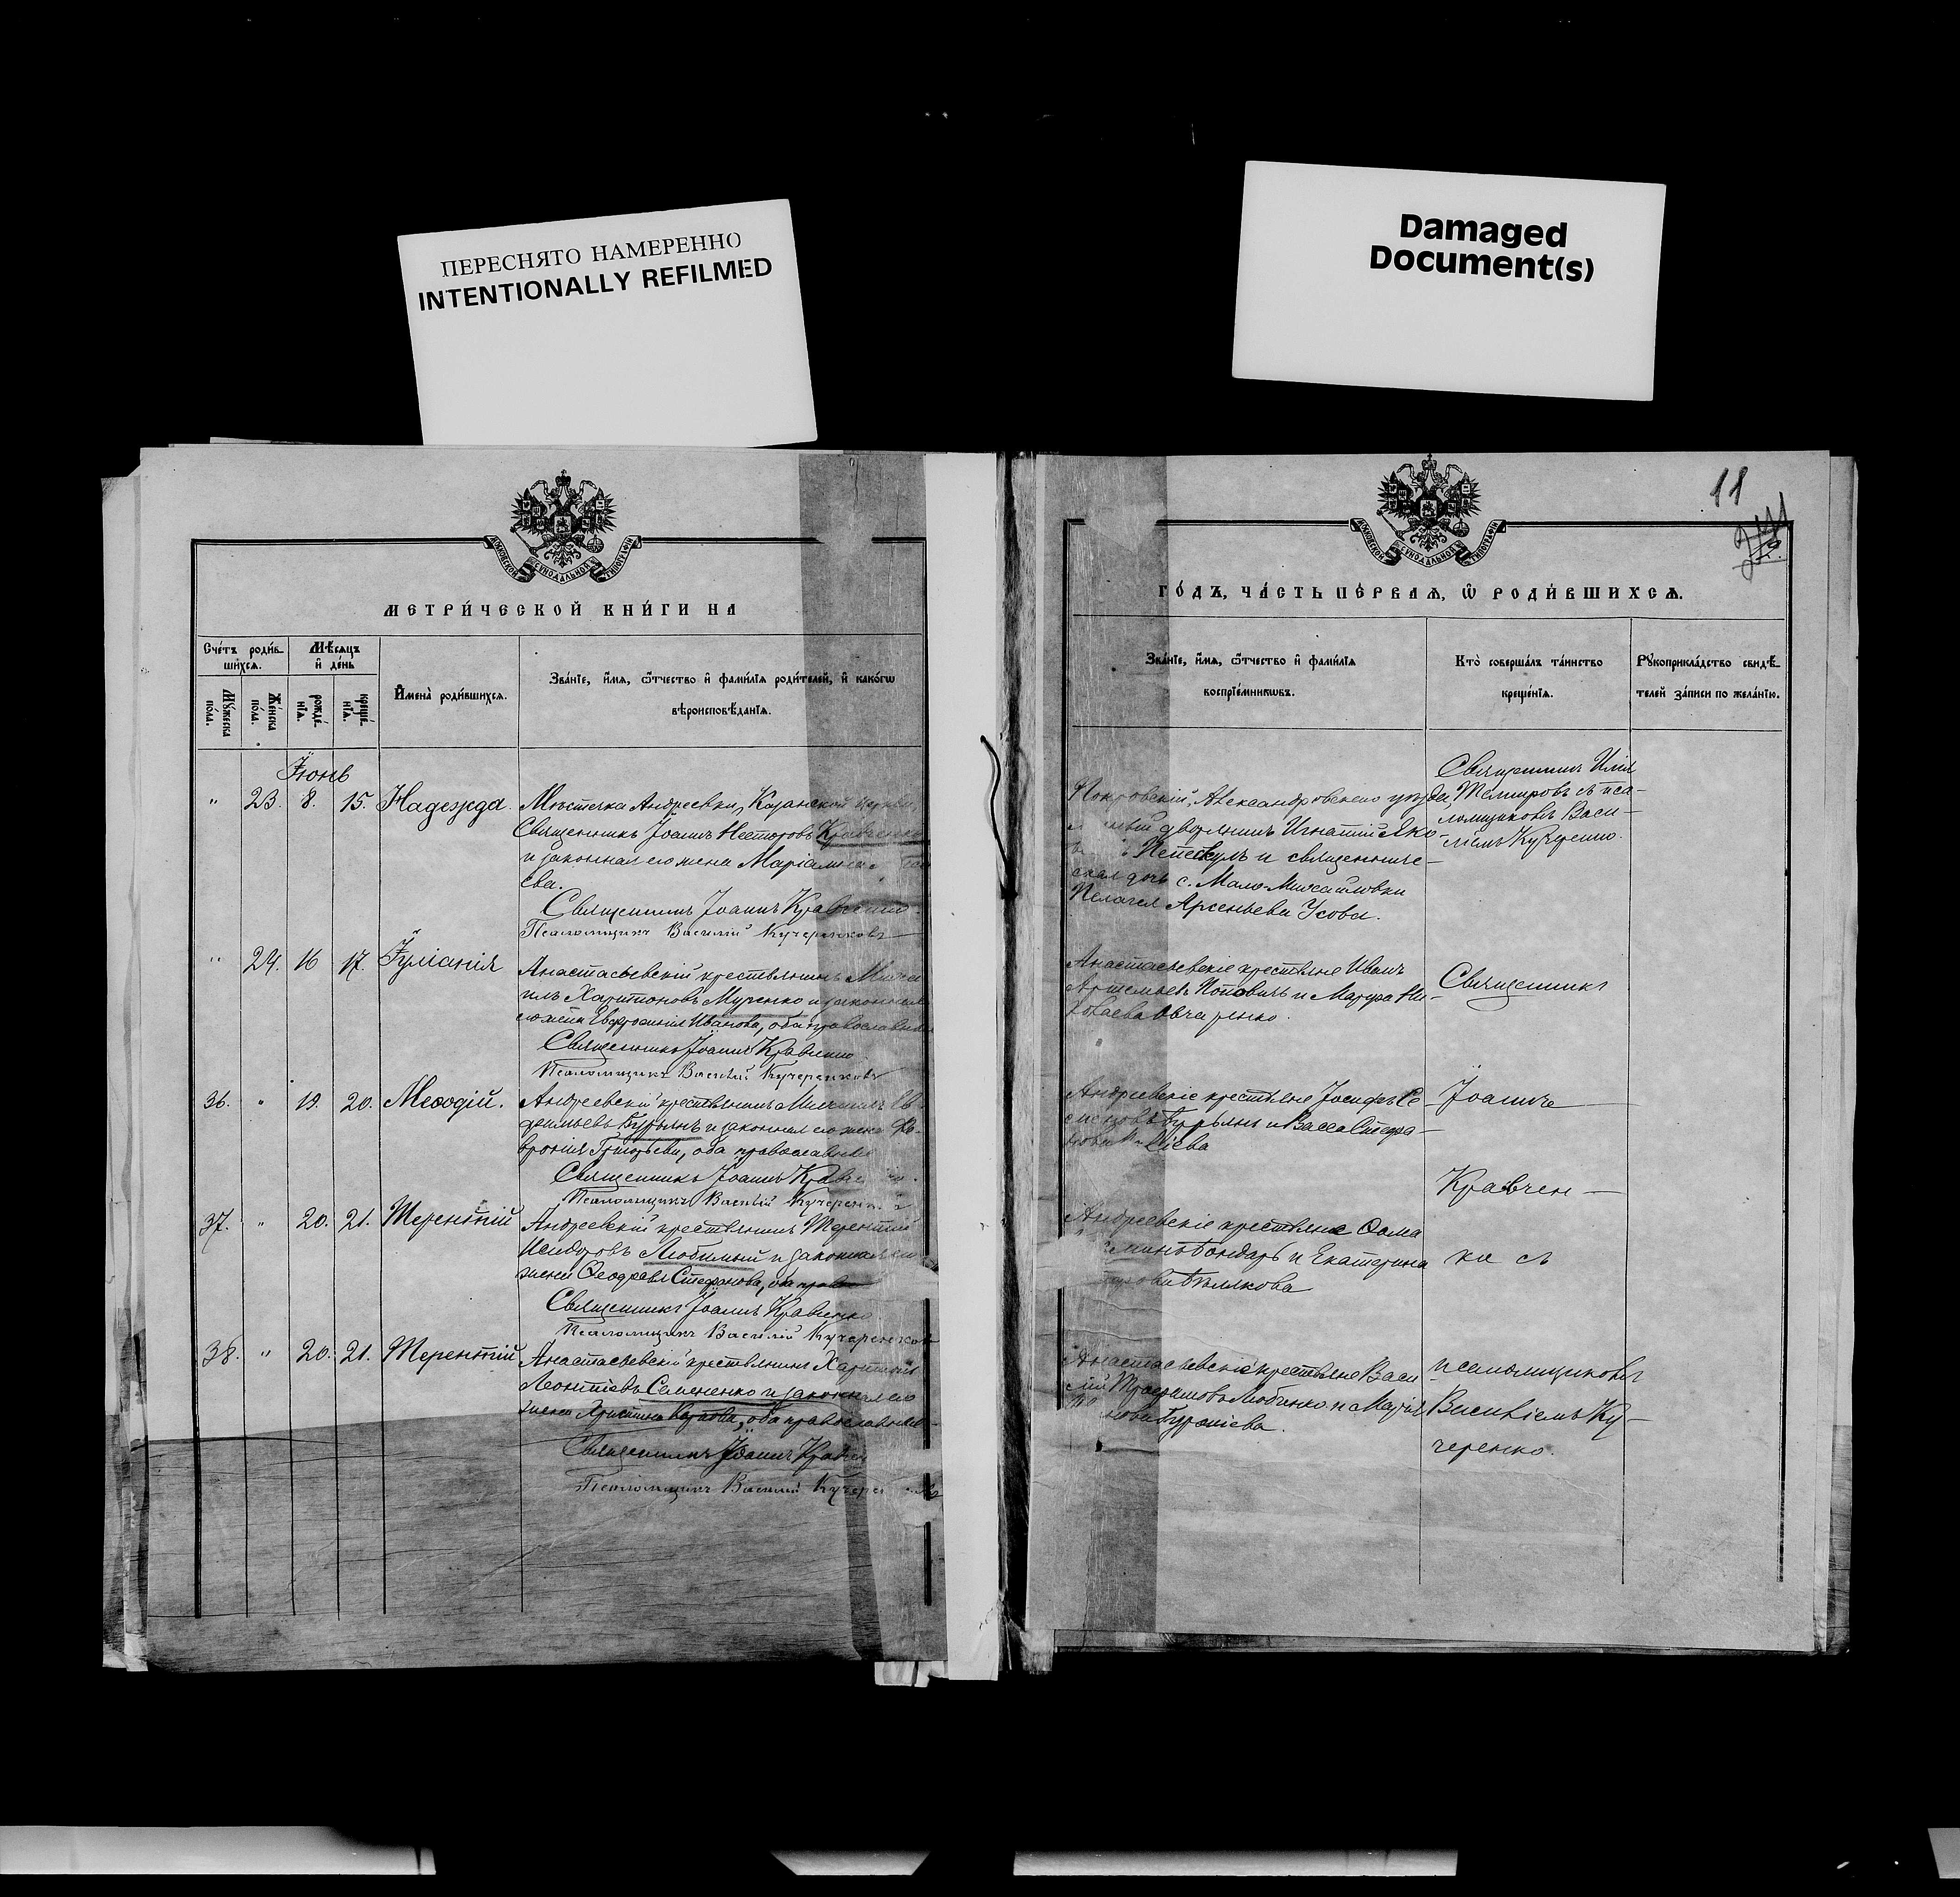 ПЕРЕСНЯТО НАМЕРЕННО
INTENTIONALLY REFILMED
Damaged
Document(s)
11
МОСКОВСКОЙ СУНОДАЛЬНОЙ ТИПОГРАФІИ
МЕТРИ́ЧЕСКОЙ КНИ́ГИ НА
Сче́тъ роди́в-
шихсѧ.
Мѣ́сѧцъ
и҆ де́нь
Мꙋ́жеска
по́ла.
Же́нска
по́ла.
рожде́-
нїѧ.
креще́-
нїѧ.
И҆мена̀ роди́вшихсѧ.
Зва́нїе, и҆́мѧ, ѻ҆́тчество и҆ фами́лїѧ роди́телей, и҆ како́гѡ
вѣроисповѣ́данїѧ.
Іюнь
" 23. 8. 15. Надежда.
Мѣстечка Андреевки, Казанской церкви,
Священникъ Іоаннъ Несторовъ Кравченко
и законная его жена
ева.
Священникъ Іоаннъ Кравченко
Псаломщикъ Василій Кучеренковъ
" 24. 16 17. Іуліанія
Анастасьевскій крестьянинъ Миха
илъ Харитоновъ Мученко и законная
его жена Евфросинія Иванова, оба православные
Священникъ Іоаннъ Кравченко
Псаломщикъ Василій Кучеренковъ
36. " 19. 20. Меѳодій.
Андреевскій крестьянинъ Михаилъ
Бурьянъ и законная его жена Фе-
вронія Григорьева, оба православные
Священникъ Іоаннъ Кравче
Псаломщикъ Василій Кучерен
37. " 20. 21. Терентій
Андреевскій крестьянинъ Терентій
Исидоровъ Любимый и законная его
жена Стефанова, оба право
Священникъ Іоаннъ Кравченко
Псаломщикъ Василій Кучеренков
38. " 20. 21. Терентій
Анастасьевскій крестьянинъ Харитонъ
Леонтіевъ Семененко и законная его
жена Христина Карпова, оба православные
Священникъ Іоаннъ Кравчен
Псаломщикъ Василій Кучере
МОСКОВСКОЙ СУНОДАЛЬНОЙ ТИПОГРАФІИ
ГО́ДЪ, ЧА́СТЬ ПЕ́РВАѦ, Ѡ҆ РОДИ́ВШИХСѦ.
Зва́нїе, и҆́мѧ, ѻ҆́тчество и҆ фами́лїѧ
воспрїе́мникѡвъ.
Кто̀ соверша́лъ та́инство
креще́нїѧ.
Рꙋкоприкла́дство свидѣ́-
телей за́писи по жела́нїю.
Покровскій, Александровскаго уѣзда,
дворянинъ Игнатій Яко-
и священниче-
ская дочь с. Мало-Михайловки
Пелагея Арсеньева Усова.
Священникъ Илія
съ пса-
ломщикомъ Васи-
ліемъ Кучеренко.
Анастасьевскіе крестьяне Иванъ
Артемьевъ Поповичъ и Марфа Ни-
Овчаренко.
Священникъ
Андреевскіе крестьяне Іосифъ Се
Бурьянъ и Васса Стефа-
Іоаннъ
Кравчен-
Андреевскіе крестьяне Ѳома
Бондарь и Екатерина
Бѣлякова
ко съ
Анастасьевскіе крестьяне Васи
лій Трофимовъ Любченко и Марія
псаломщикомъ
Василіемъ Ку-
черенко.